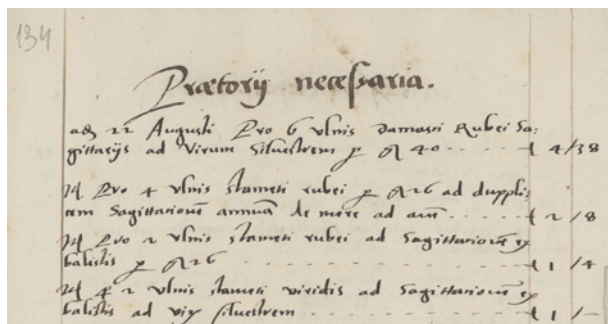 134
Prætorij necessaria.
ad 22 Augusti Pro 6 vlnis Damasci Rubei Sa:
gittarijs ad Virum Siluestrem 40 4/38
Pro 4 vlnis stameti rubei 26 ad duppli:
cem Sagittationē annuā de more ad 2/8
Pro 2 vlnis stameti rubei ad Sagittationē ex
balistis 26 1/4
2 vlnis stameti viridis ad Sagittationē ex
balistis ad siluestrem 1/-